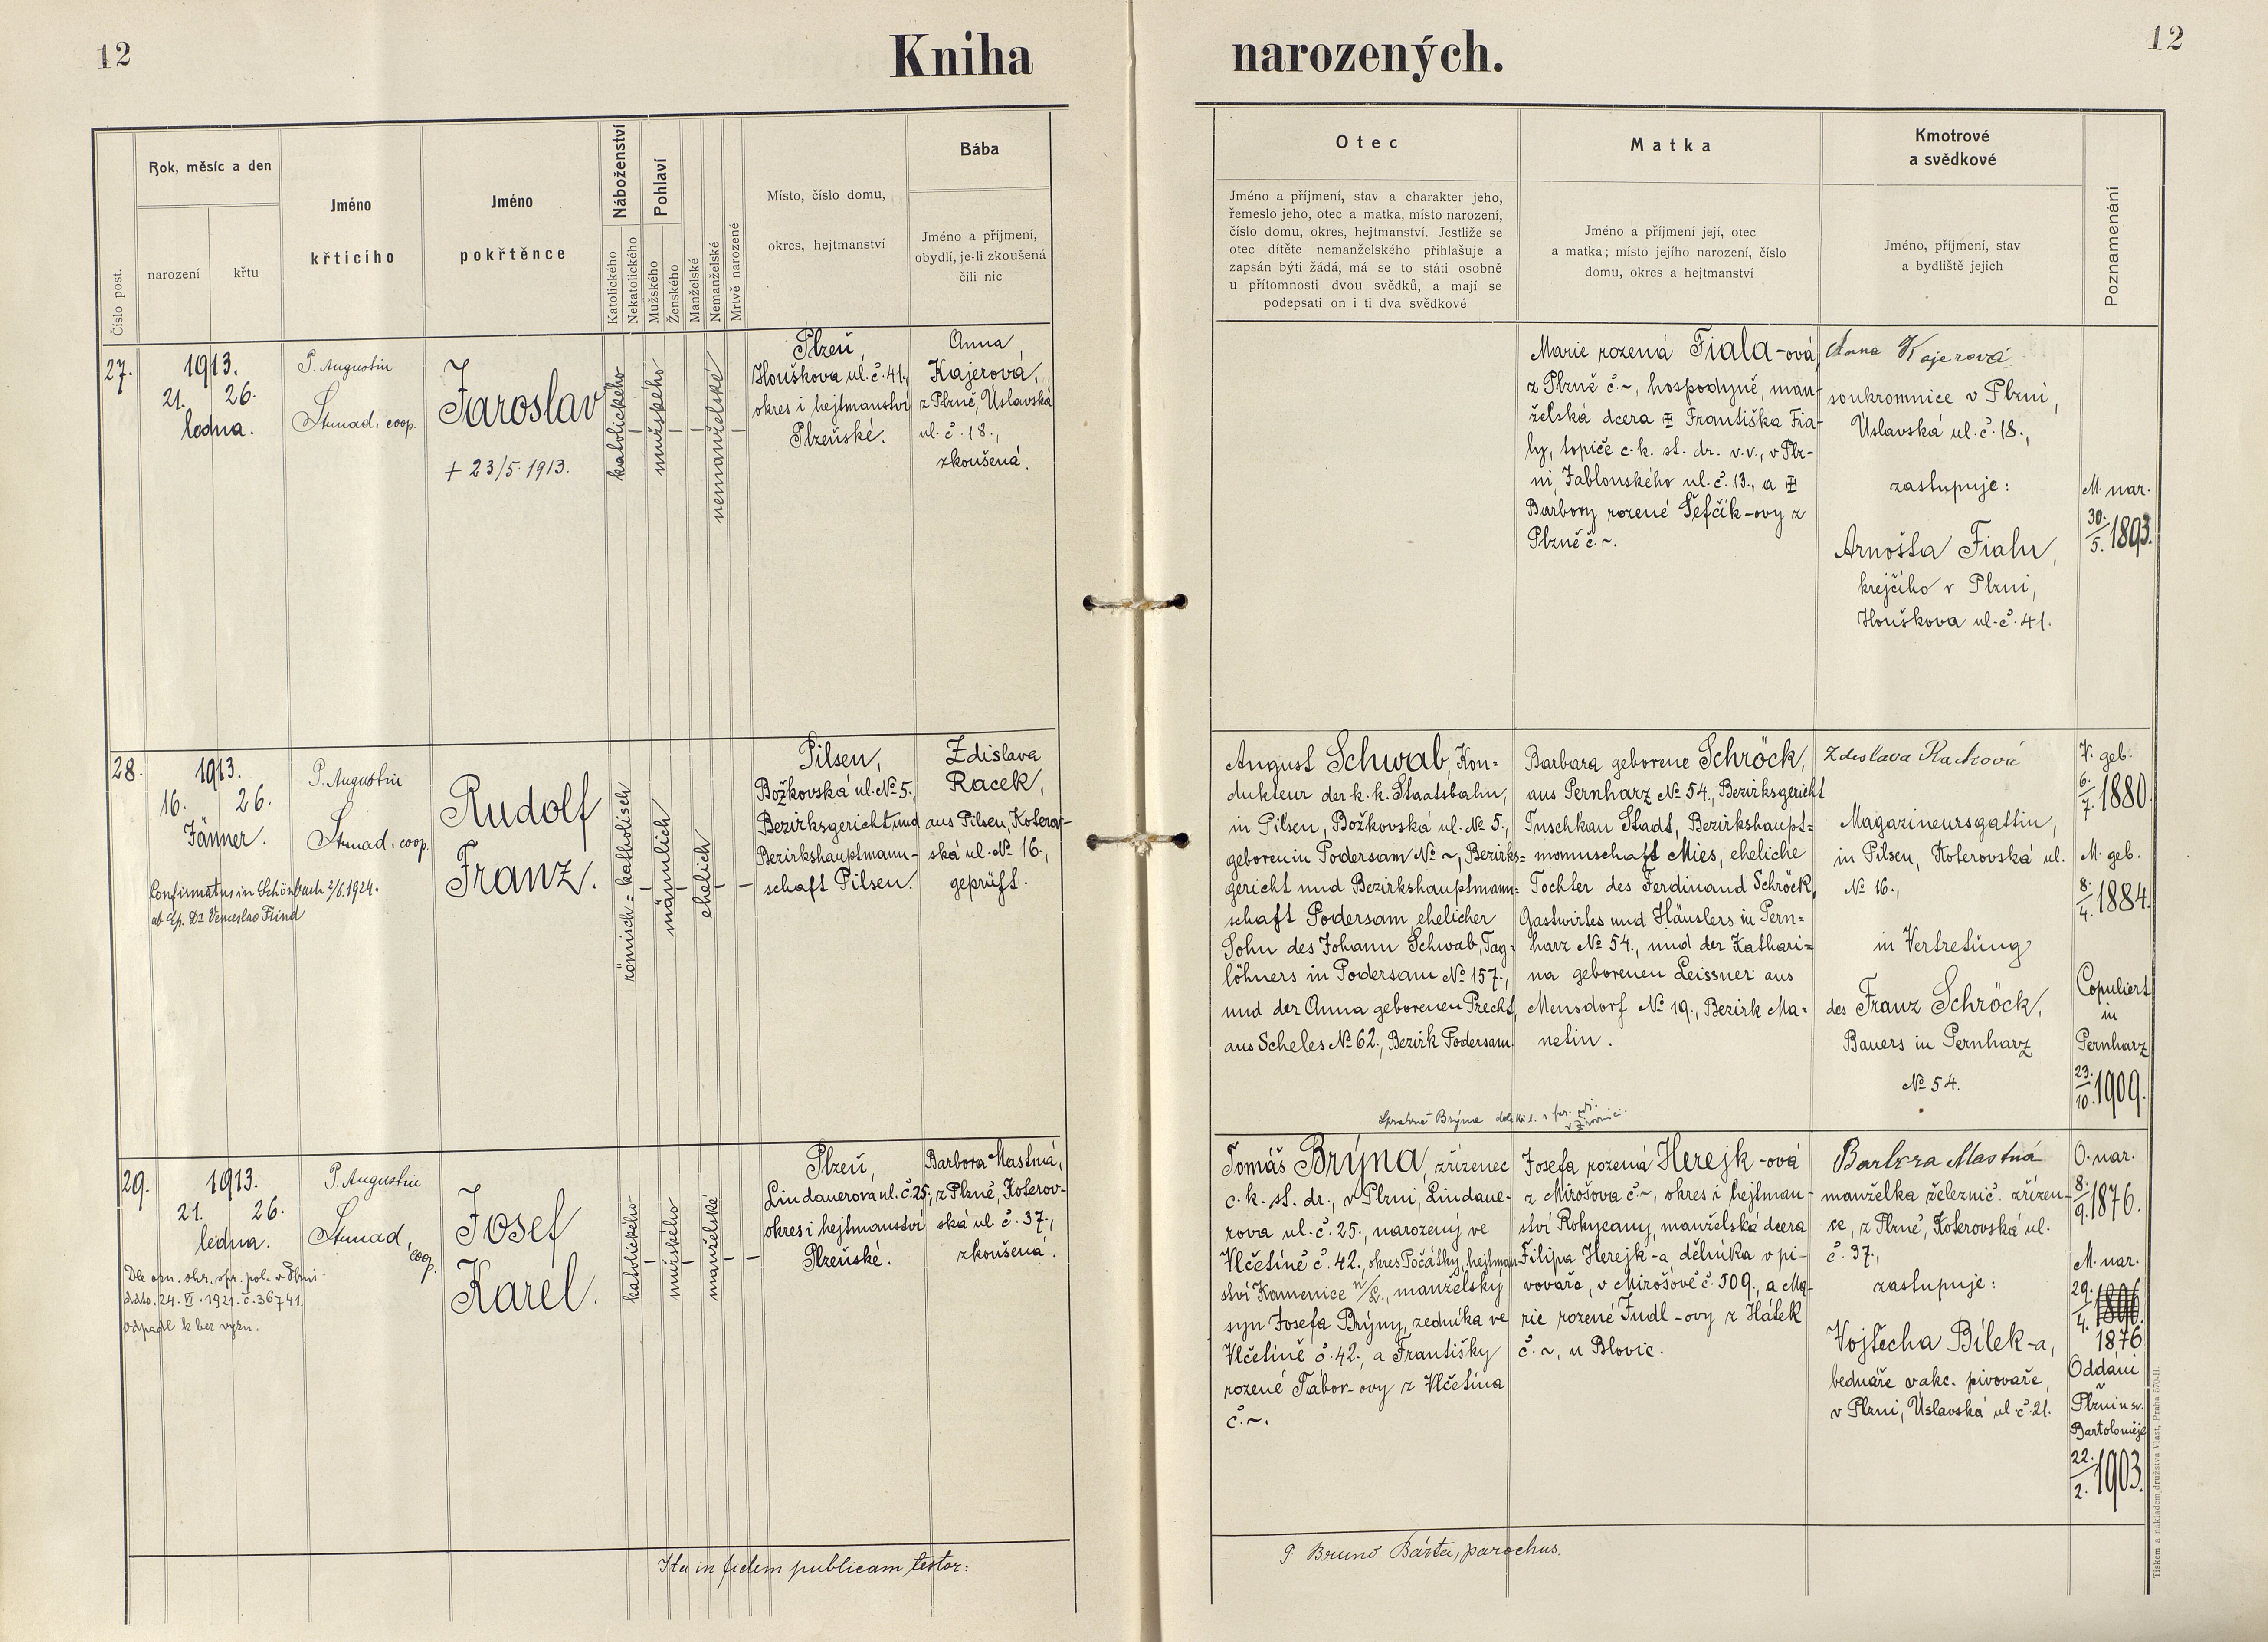 12
Kniha
narozených.
12
Číslo post.
Rok, měsíc a den
narození
křtu
Jméno
křtícího
Jméno
pokřtěnce
Náboženství
Katolického
Nekatolického
Pohlaví
Mužského
Ženského
Manželské
Nemanželské
Mrtvě narozené
Místo, číslo domu,
okres, hejtmanství
Bába
Jméno a příjmení,
obydlí, je-li zkoušená
čili nic
Otec
Jméno a příjmení, stav a charakter jeho,
řemeslo jeho, otec a matka, místo narození,
číslo domu, okres, hejtmanství. Jestliže se
otec dítěte nemanželského přihlašuje a
zapsán býti žádá, má se to státi osobně
u přítomnosti dvou svědků, a mají se
podepsati on i ti dva svědkové
Matka
Jméno a příjmení její, otec
a matka; místo jejího narození, číslo
domu, okres a hejtmanství
Kmotrové
a svědkové
Jméno, příjmení, stav
a bydliště jejich
Poznamenání
27.
1913.
21. 26.
ledna.
P. Augustin
Strnad, coop.
Jaroslav
+ 23/5 1913.
katolického
mužského
nemanželské
Plzeň,
Houškova ul. č. 41.,
okres i hejtmanství
Plzeňské.
Anna
Kajerová,
z Plzně, Úslavská
ul. č. 18.,
zkoušená.
Marie rozená Fiala-ová,
z Plzně č. ~, hospodyně, man-
želská dcera Františka Fia-
ly, topiče c. k. st. dr. v. v., v Plz-
ni, Jablonského ul. č. 13., a
Barbory rozené Šefčík-ovy z
Plzně č. ~.
Anna Kajerová
soukromnice v Plzni,
Úslavská ul. č. 18.,
zastupuje:
Arnošta Fialu,
krejčího v Plzni,
Houškova ul. č. 41.
M. nar.
30./5. 1893.
28.
1913.
16. 26.
Jänner.
Confirmatus in Schönbach 2/6. 1924.
ab Ep. Dr. Venceslao Frind
P. Augustin
Strnad, coop.
Rudolf
Franz.
römisch=katholisch
männlich
ehelich
Pilsen,
Božkovská ul. No 5.,
Bezirksgericht und
Bezirkshauptmann-
schaft Pilsen.
Zdislava
Racek,
aus Pilsen, Koterov-
ská ul. No 16.,
geprüft.
August Schwab, Kon=
dukteur der k. k. Staatsbahn,
in Pilsen, Božkovská ul. No 5.,
geboren in Podersam No ~, Bezirks=
gericht und Bezirkshauptmann=
schaft Podersam, ehelicher
Sohn des Johann Schwab, Tag=
löhners in Podersam No 157.,
und der Anna geborenen Precht,
aus Scheles No 62., Bezirk Podersam.
Barbara geborene Schröck,
aus Pernharz No 54., Bezirksgericht
Tuschkau Stadt, Bezirkshaupt=
mannschaft Mies, eheliche
Tochter des Ferdinand Schröck,
Gastwirtes und Häuslers in Pern=
harz No 54., und der Kathari=
na geborenen Leissner aus
Mensdorf No 19., Bezirk Ma=
netin.
Zdislava Racková
Magazineursgattin,
in Pilsen, Koterovská ul.
No 16.,
in Vertretung
des Franz Schröck,
Bauers in Pernharz
No 54.
V. geb.
6./7. 1880.
M. geb.
8./4. 1884.
Copuliert
in
Pernharz
23./10. 1909.
29.
1913.
21. 26.
ledna.
Dle ozn. okr. spr. pol. v Plzni
ddto. 24. VI. 1921. č. 36741.
odpadl k bez vyzn.
P. Augustin
Strnad,
coop.
Josef
Karel.
katolického
mužského
manželské
Plzeň,
Lindauerova ul. č. 25.,
okres i hejtmanství
Plzeňské.
Barbora Mastná,
z Plzně, Koterov-
ská ul. č. 37.,
zkoušená.
Správně Brýna
Tomáš Brýna, zřízenec
c. k. st. dr., v Plzni, Lindaue-
rova ul. č. 25., narozený ve
Vlčetíně č. 42., okres Počátky, hejtman-
ství Kamenice n/L., manželský
syn Josefa Brýny, zedníka ve
Vlčetíně č. 42., a Františky
rozené Tábor-ovy z Vlčetína
č. ~.
Josefa rozená Herejk-ová
z Mirošova č. ~, okres i hejtman-
ství Rokycany, manželská dcera
Filipa Herejk-a, dělníka v pi-
vovaře, v Mirošově č. 509., a Ma-
rie rozené Fudl-ovy z Hálek
č. ~, u Blovic.
Barbora Mastná
manželka železnič. zřízen-
ce, z Plzně, Koterovská ul.
č. 37.,
zastupuje:
Vojtěcha Bílek-a,
bednáře v akc. pivovaře,
v Plzni, Úslavská ul. č. 21.
O. nar.
8./9. 1876.
M. nar.
29./4.
1876
Oddáni
v
Plzni u sv.
Bartoloměje
22./2. 1903.
Ita in fidem publicam testor:
P. Bruno Bárta, parochus.
Tiskem a nákladem družstva Vlast, Praha 570-II.